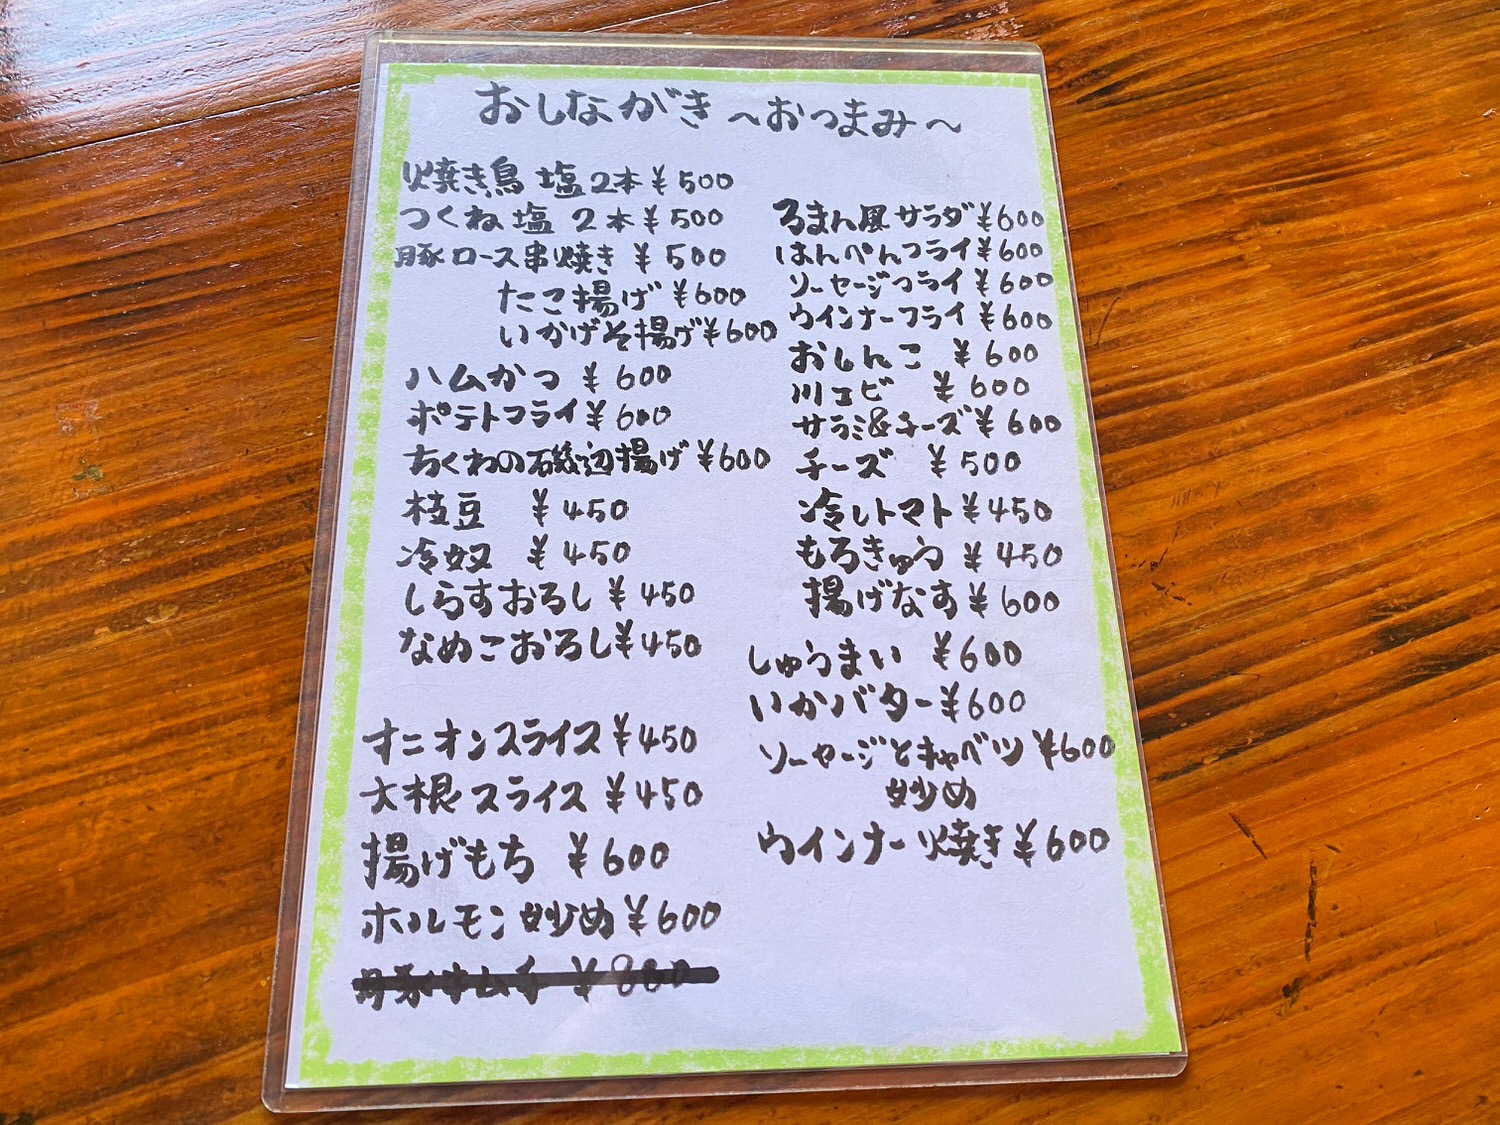 おしながき 〜おつまみ〜
焼き鳥 塩 2本 ¥500
つくね 塩 2本 ¥500
豚ロース串焼き ¥500
たこ揚げ ¥600
いかげそ揚げ ¥600
ハムかつ ¥600
ポテトフライ ¥600
ちくわの磯辺揚げ ¥600
枝豆 ¥450
冷奴 ¥450
しらすおろし ¥450
なめこおろし ¥450
オニオンスライス ¥450
大根スライス ¥450
揚げもち ¥600
ホルモン炒め ¥600
¥800
るまん風サラダ ¥600
はんぺんフライ ¥600
ソーセージフライ ¥600
ウインナーフライ ¥600
おしんこ ¥600
川エビ ¥600
サラミ&チーズ ¥600
チーズ ¥500
冷しトマト ¥450
もろきゅう ¥450
揚げなす ¥600
しゅうまい ¥600
いかバター ¥600
ソーセージとキャベツ ¥600
炒め
ウインナー焼き ¥600